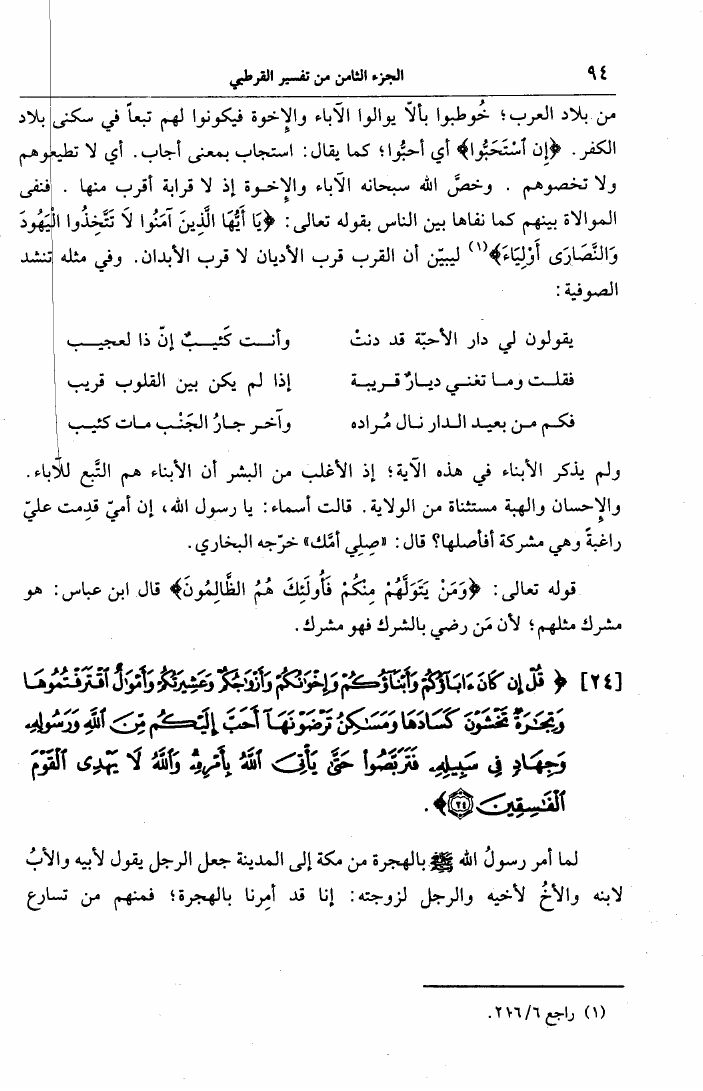 ٩٤ الجزء الثامن من تفسير القرطبي
من بلاد العرب؛ خُوطبوا بألاّ يوالوا الآباء والإخوة فيكونوا لهم تبعاً في سكنى بلاد
الكفر. ﴿إِن ٱسْتَحَبُّوا﴾ أي أحبُّوا؛ كما يقال: استجاب بمعنى أجاب. أي لا تطيعوهم
ولا تخصوهم . وخصَّ الله سبحانه الآباء والإخوة إذ لا قرابة أقرب منها . فنفى
الموالاة بينهم كما نفاها بين الناس بقوله تعالى: ﴿يَا أَيُّهَا الَّذِينَ آمَنُوا لاَ تَتَّخِذُوا الْيَهُودَ
وَالنَّصَارَى أَوْلِيَاءَ﴾(١) ليبيّن أن القرب قرب الأديان لا قرب الأبدان. وفي مثله تنشد
الصوفية:
يقولون لي دار الأحبّة قد دنتْ وأنت كَئيبٌ إنّ ذا لعجيب
فقلت وما تغني ديارٌ قريبة إذا لم يكن بين القلوب قريب
فكم من بعيد الدار نال مُراده وآخر جارُ الجَنْب مات كئيب
ولم يذكر الأبناء في هذه الآية؛ إذ الأغلب من البشر أن الأبناء هم التَّبع للآباء.
والإحسان والهبة مستثناة من الولاية. قالت أسماء: يا رسول الله، إن أميّ قدِمت عليّ
راغبةً وهي مشركة أفأصلها؟ قال: «صِلِي أمَّك» خرّجه البخاري.
قوله تعالى: ﴿وَمَنْ يَتَوَلَّهُمْ مِنْكُمْ فَأُولَئِكَ هُمُ الظَّالِمُونَ﴾ قال ابن عباس: هو
مشرك مثلهم؛ لأن مَن رضي بالشرك فهو مشرك.
[٢٤] ﴿قُلْ إِن كَانَ ءَابَآؤُكُمْ وَأَبْنَآؤُكُمْ وَإِخْوَٰنُكُمْ وَأَزْوَٰجُكُمْ وَعَشِيرَتُكُمْ وَأَمْوَٰلٌ ٱقْتَرَفْتُمُوهَا
وَتِجَٰرَةٌ تَخْشَوْنَ كَسَادَهَا وَمَسَٰكِنُ تَرْضَوْنَهَآ أَحَبَّ إِلَيْكُم مِّنَ ٱللَّهِ وَرَسُولِهِۦ
وَجِهَادٍ فِى سَبِيلِهِۦ فَتَرَبَّصُوا۟ حَتَّىٰ يَأْتِىَ ٱللَّهُ بِأَمْرِهِۦ وَٱللَّهُ لَا يَهْدِى ٱلْقَوْمَ
ٱلْفَٰسِقِينَ ٢٤﴾.
لما أمر رسولُ الله ﷺ بالهجرة من مكة إلى المدينة جعل الرجل يقول لأبيه والأبُ
لابنه والأخُ لأخيه والرجل لزوجته: إنا قد أمِرنا بالهجرة؛ فمنهم من تسارع
(١) راجع ٢١٦/٦.